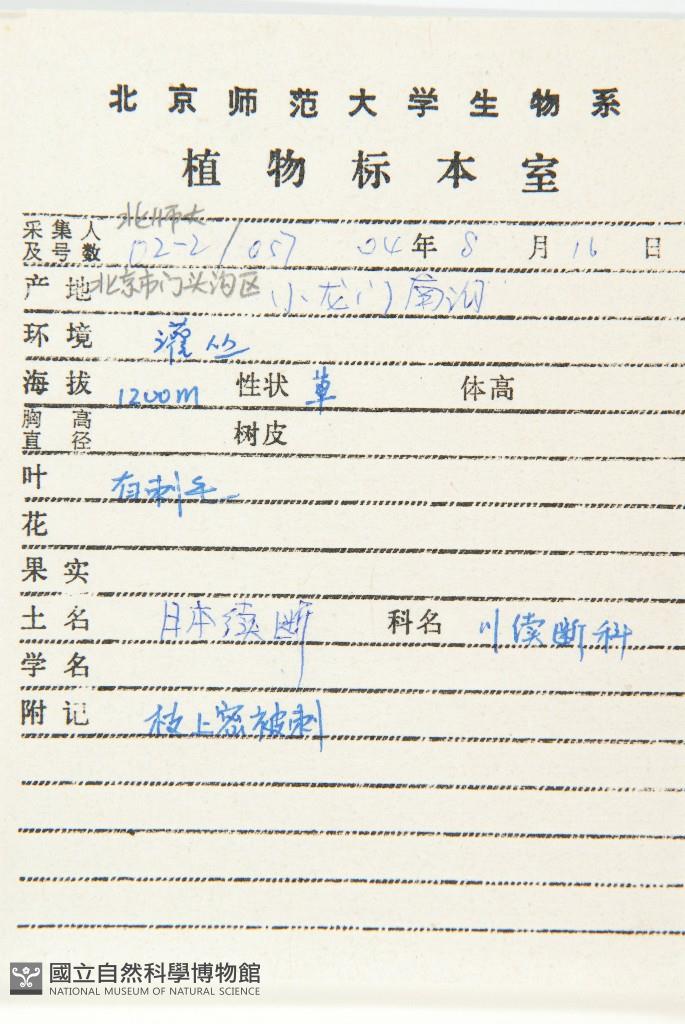 北京师范大学生物系
植物标本室
北师大
采集人及号数 02-2/057 04年8月16日
产地 北京市门头沟区 小龙门南沟
环境 灌丛
海拔 1200m 性状 草 体高
胸高直径 树皮
叶 有刺毛
花
果实
土名 日本续断 科名 川续断科
学名
附记 枝上密被刺
國立自然科學博物館
NATIONAL MUSEUM OF NATURAL SCIENCE